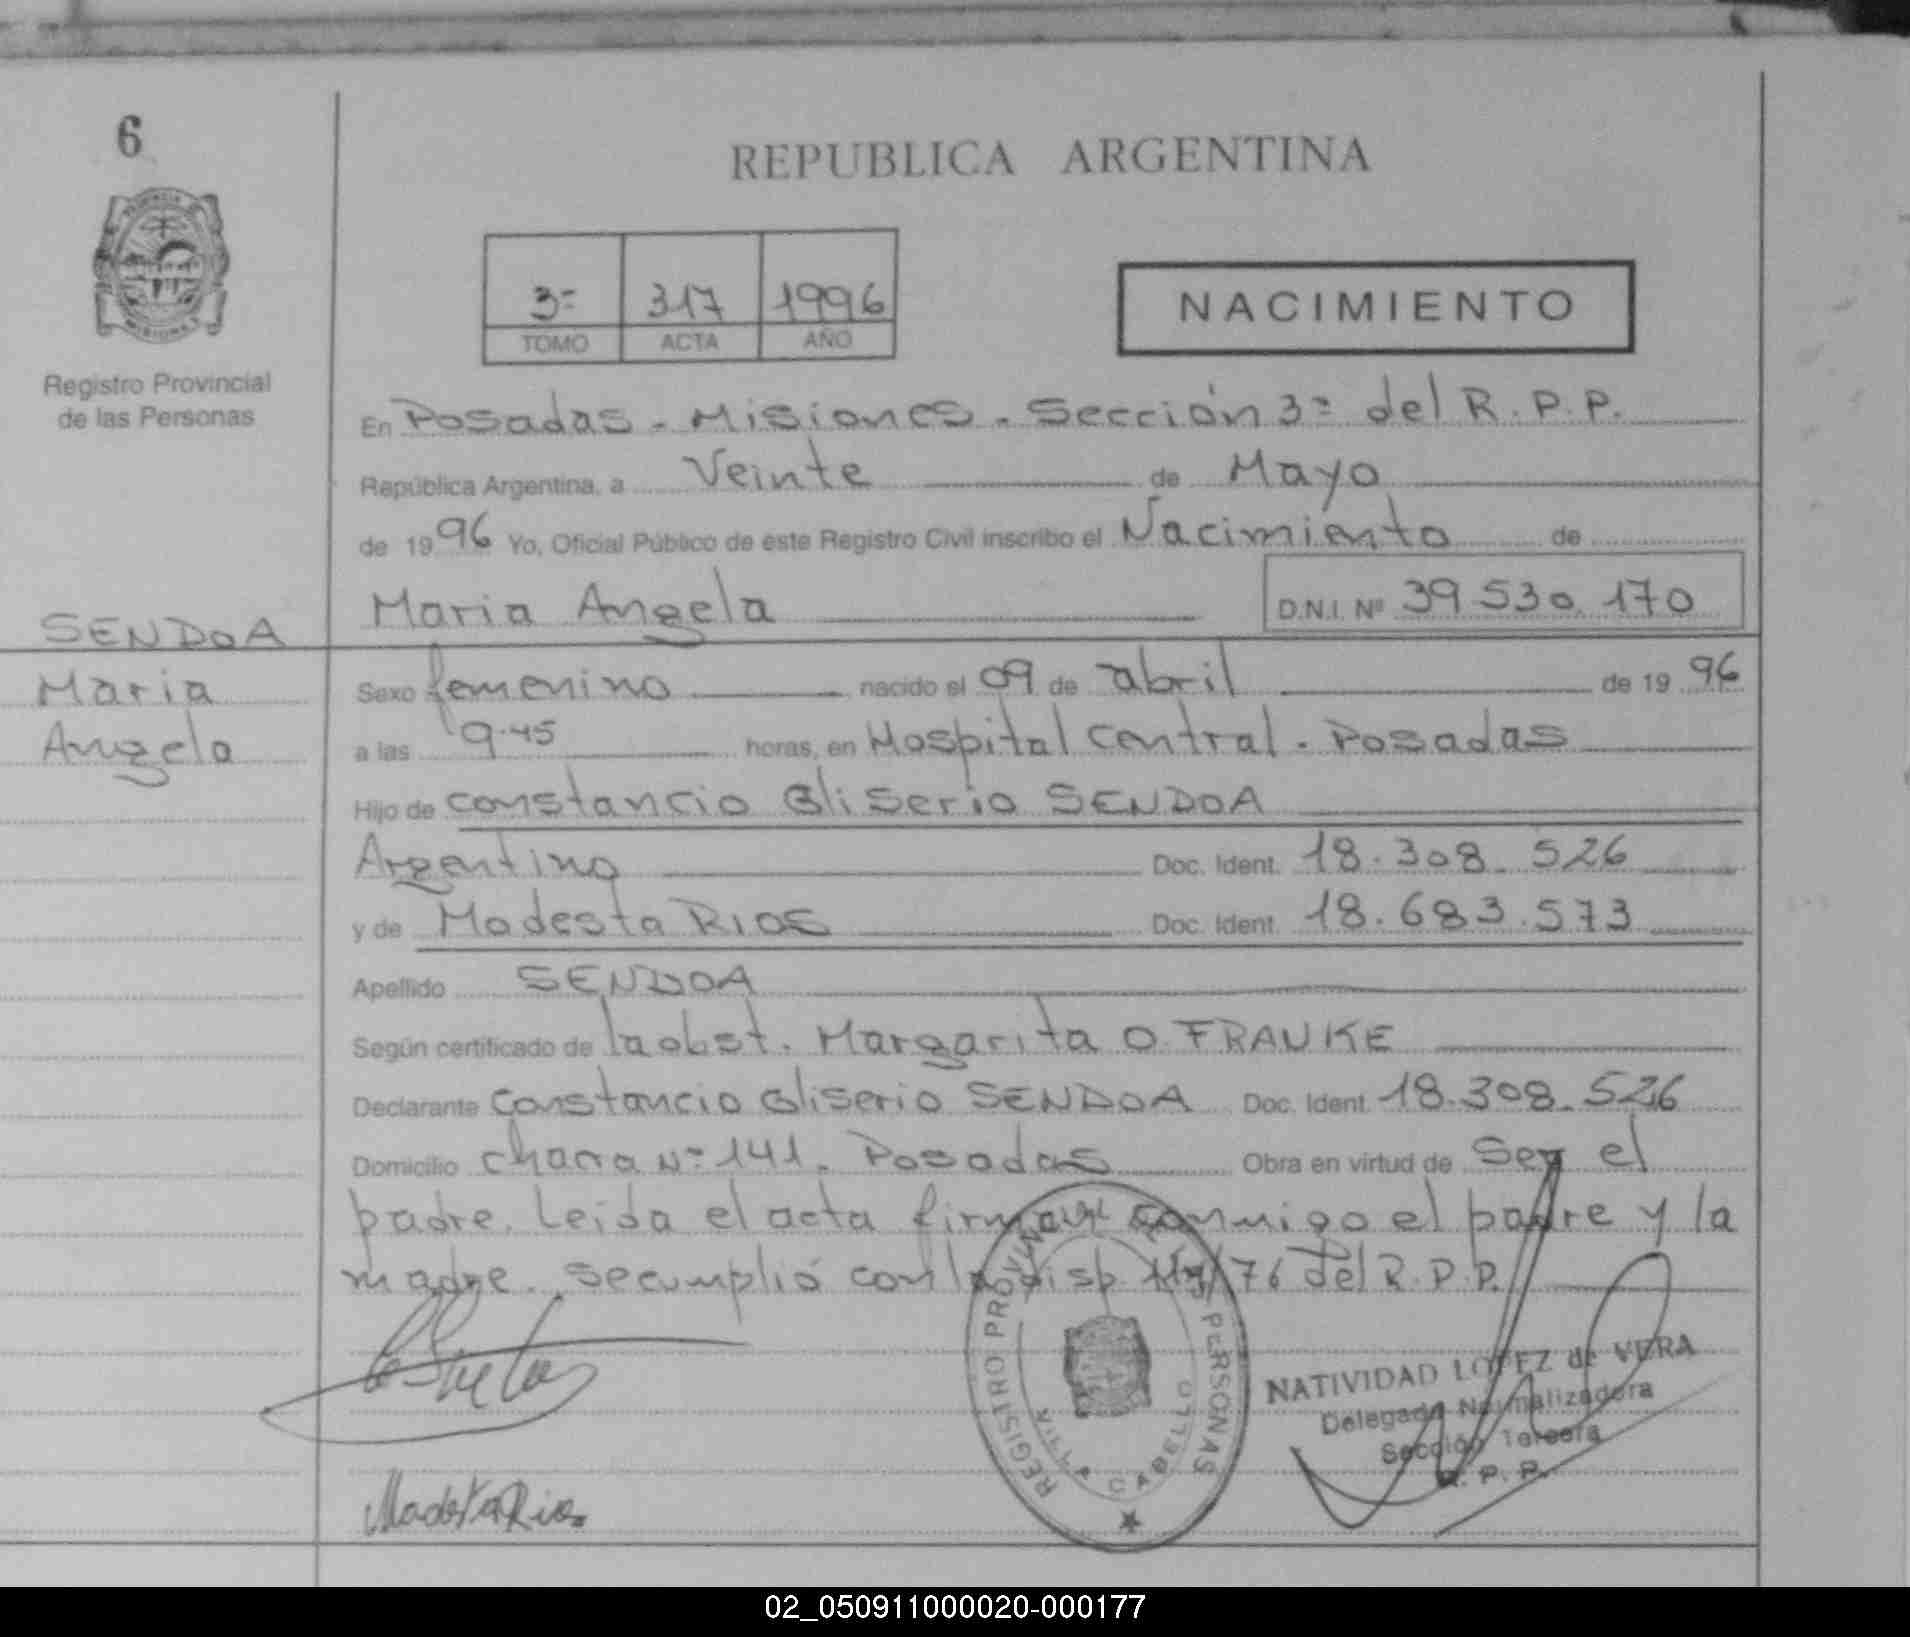 6
REPUBLICA ARGENTINA
3= 317 1996
TOMO ACTA AÑO
NACIMIENTO
Registro Provincial
de las Personas
En Posadas - Misiones - Sección 3= del R.P.P.
República Argentina, a Veinte de Mayo
de 1996 Yo, Oficial Público de este Registro Civil inscribo el Nacimiento de
Maria Angela D.N.I. Nº 39 530 170
SENDOA
Maria
Angela
Sexo femenino nacido el 09 de abril de 1996
a las 9.45 horas, en Hospital Central. Posadas
Hijo de Constancio Gliserio SENDOA
Argentino Doc. Ident. 18.308.526
y de Modesta RIOS Doc. Ident. 18.683.573
Apellido SENDOA
Según certificado de la obst. Margarita O. FRANKE
Declarante Constancio Gliserio SENDOA Doc. Ident. 18.308.526
Domicilio chacra Nº 141. Posadas Obra en virtud de Ser el
padre. Leida el acta firman conmigo el padre y la
madre. Se cumplió con la disp. /76 del R.P.P.
REGISTRO PROVINCIAL PERSONAS
VILLA CABELLO
NATIVIDAD LOPEZ de VERA
Delegada Normalizadora
Sección Tercera
R.P.P.
Modesta Rios
02_050911000020-000177